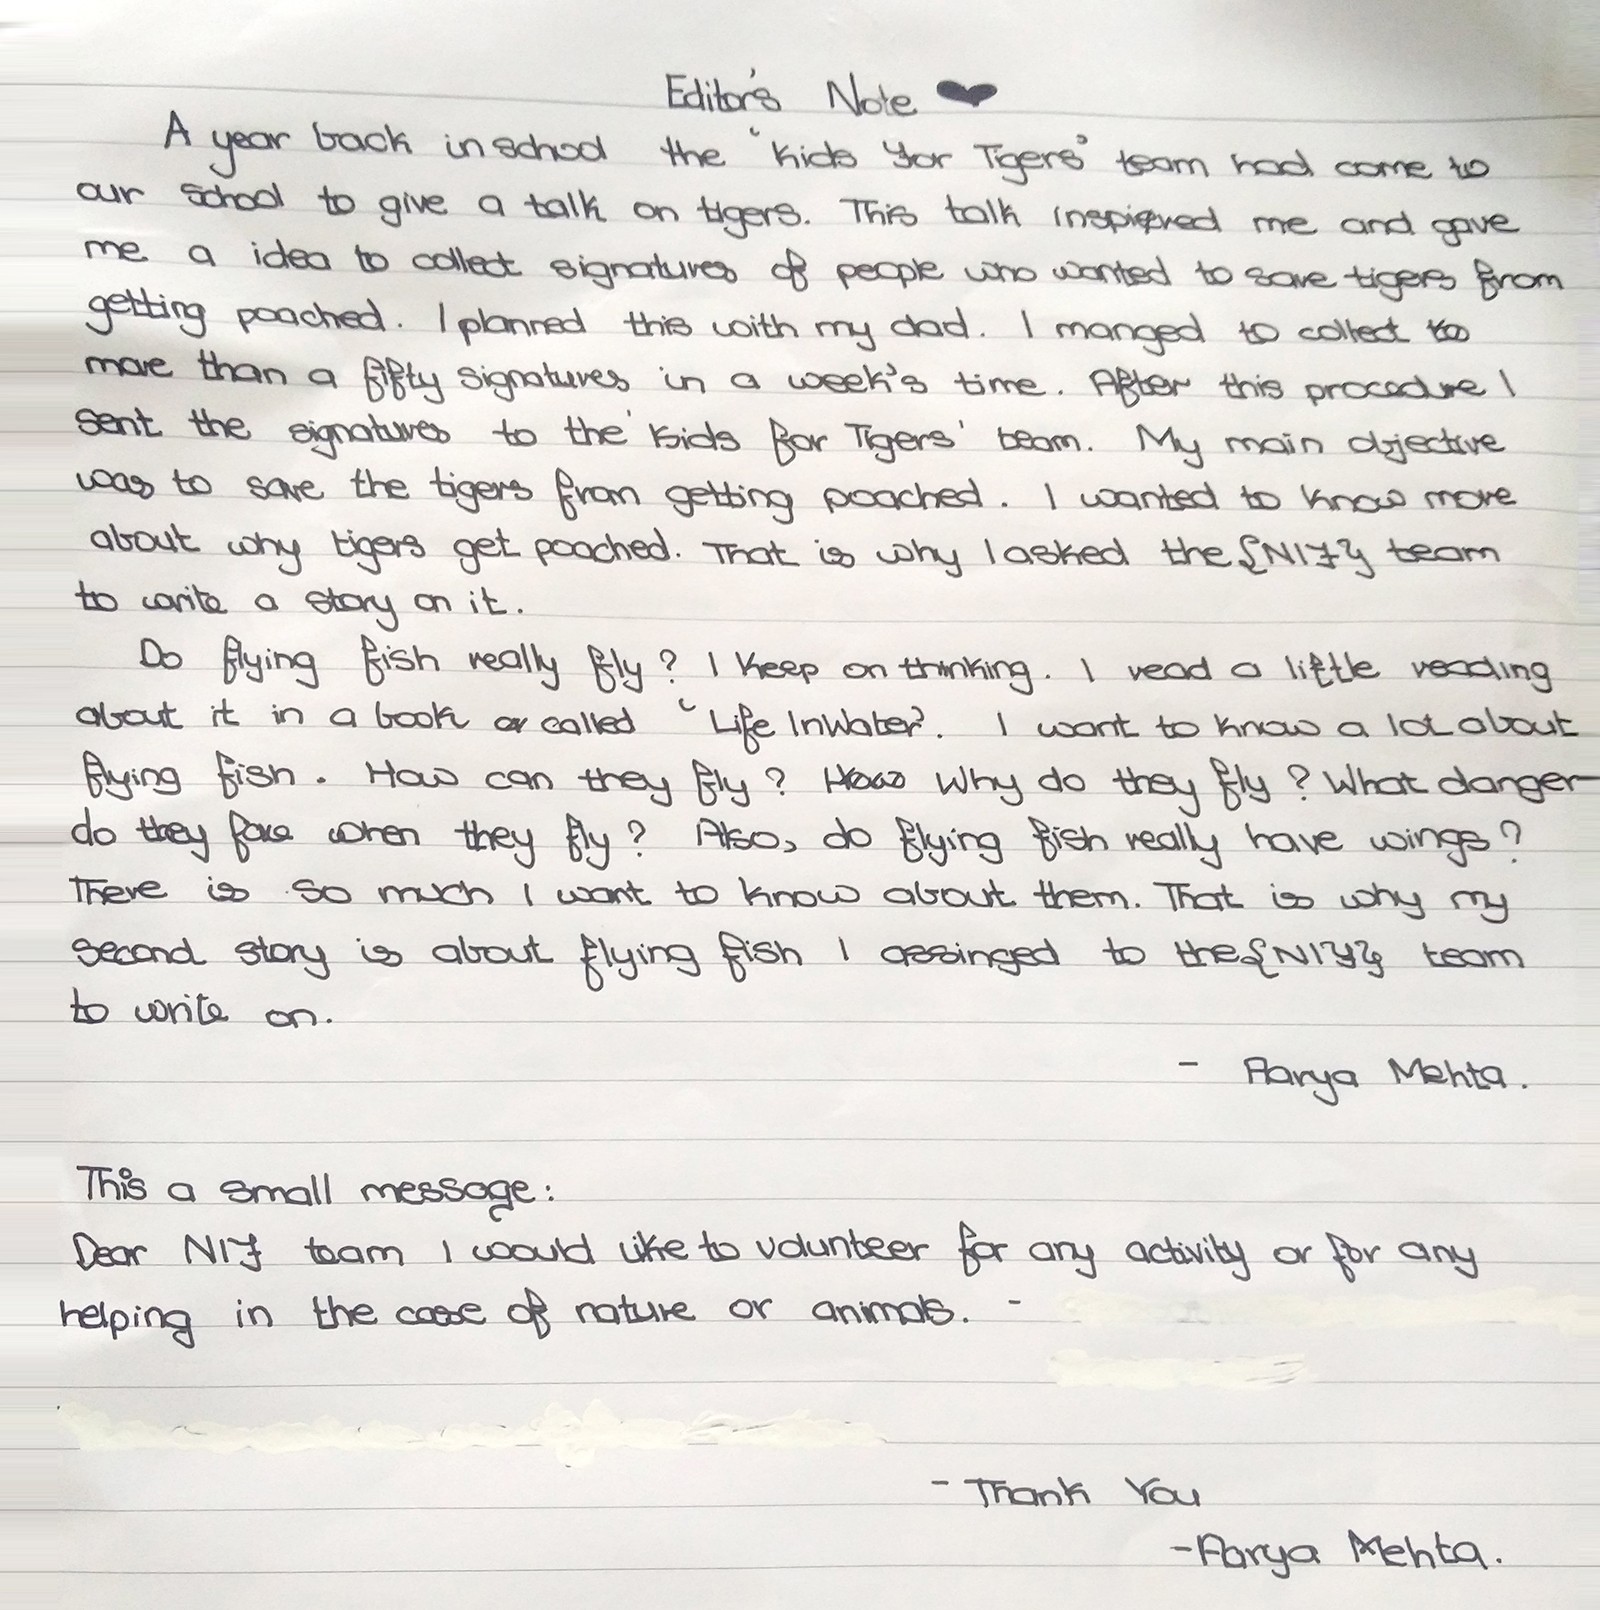 Editor's Note ♥
A year back in school the 'Kids for Tigers' team had come to
our school to give a talk on tigers. This talk inspiered me and gave
me a idea to collect signatures of people who wanted to save tigers from
getting poached. I planned this with my dad. I manged to collect to
more than a fifty signatures in a week's time. After this procedure I
sent the signatures to the 'Kids for Tigers' team. My main objective
was to save the tigers from getting poached. I wanted to know more
about why tigers get poached. That is why I asked the {NIF} team
to write a story on it.
Do flying fish really fly? I keep on thinking. I read a little reading
about it in a book or called 'Life In Water'. I want to know a lot about
flying fish. How can they fly? How Why do they fly? What danger
do they face when they fly? Also, do flying fish really have wings?
There is so much I want to know about them. That is why my
second story is about flying fish I assinged to the {NIF} team
to write on.
- Aarya Mehta.
This a small message:
Dear NIF team I would like to volunteer for any activity or for any
helping in the case of nature or animals. -
- Thank You
- Aarya Mehta.